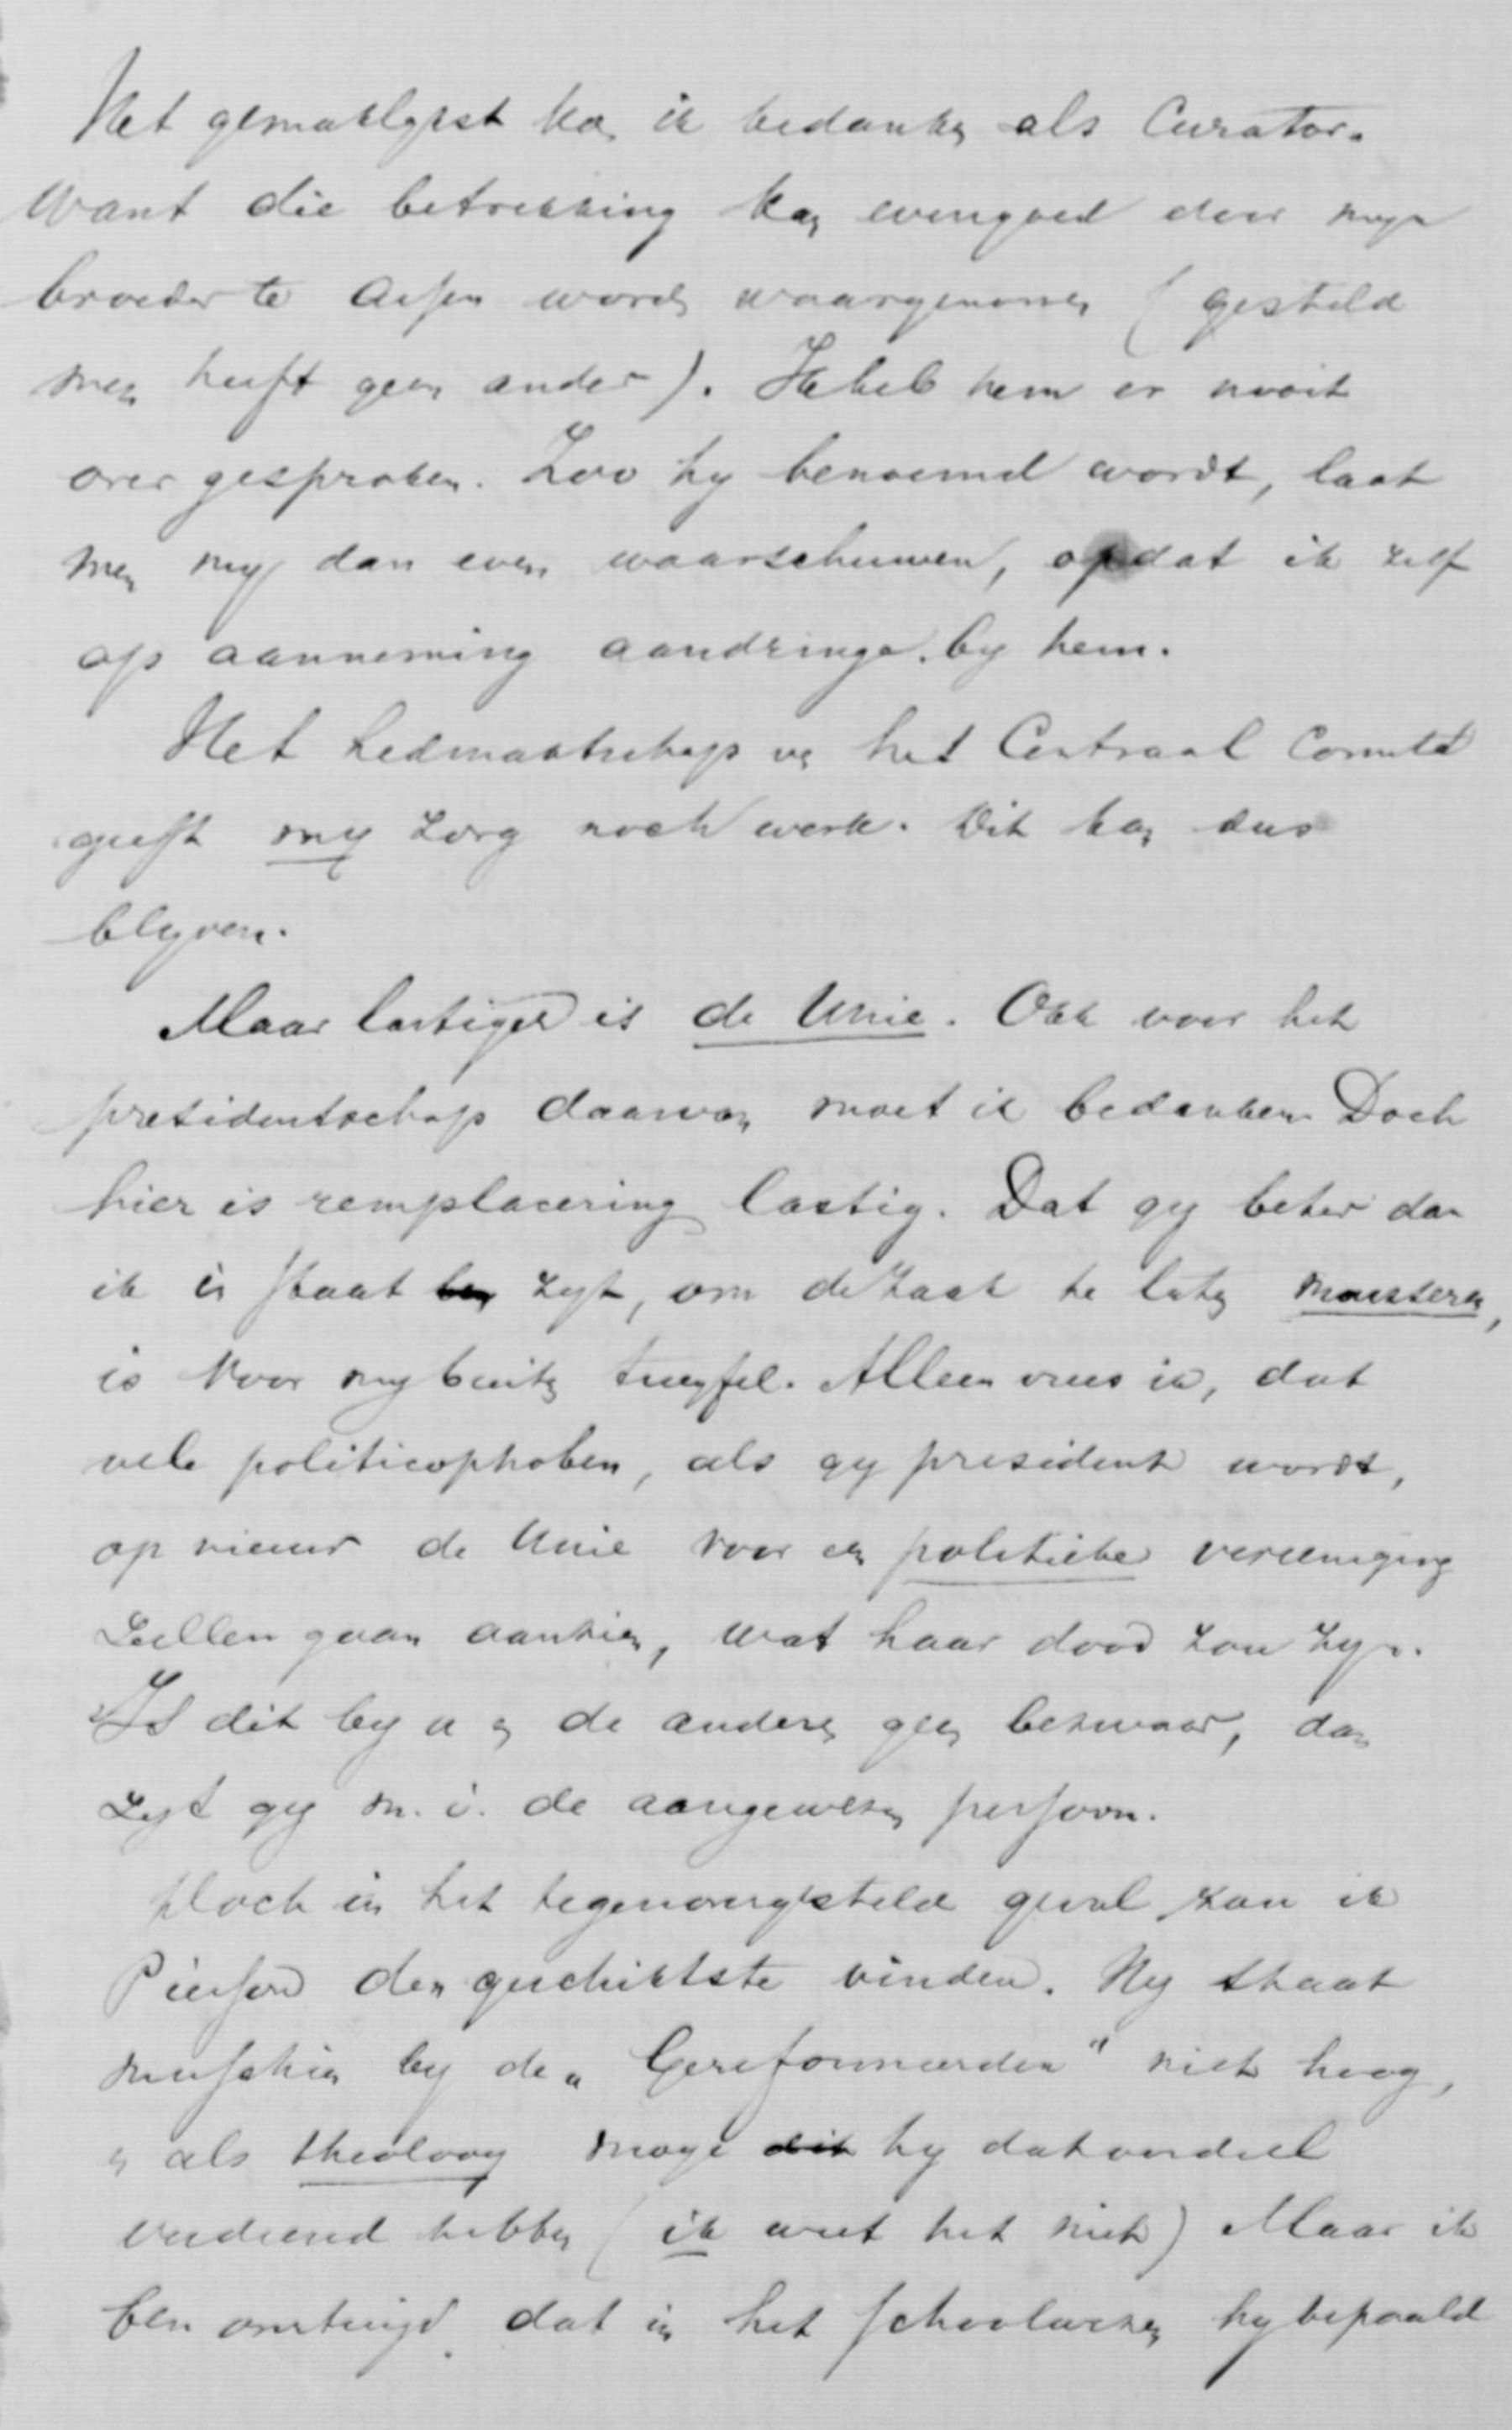 Het gemaklykst kan ik bedanken als Curator.
Want die betrekking kan evengoed door myn
broeder te Assen worden waargenomen (gesteld
men heeft geen ander). Ik heb hem er nooit
over gesproken. Zoo hy benoemd wordt, laat
men my dan even waarschuwen, opdat ik zelf
op aanneming aandringe by hem.
Het Lidmaatschap van het Centraal Comité
geeft my zorg noch werk. Dit kan dus
blyven.
Maar lastiger is de Unie. Ook voor het
presidentschap daarvan moet ik bedanken. Doch
hier is remplacering lastig. Dat gy beter dan
ik in staat ben zyt, om de zaak te laten mousseren,
is voor my buiten twyfel. Alleen vrees ik, dat
vele politicophoben, als gy president wordt,
op nieuw de Unie voor een politieke vereeniging
zullen gaan aanzien, wat haar dood zou zyn.
Is dit by u en de anderen geen bezwaar, dan
zyt gy m. i. de aangewezen persoon.
Doch in het tegenovergestelde geval zou ik
Pierson den geschiktste vinden. Hy staat
misschien by de „Gereformeerden" niet hoog,
en als theoloog moge dit hy dat oordeel
verdiend hebben (ik weet het niet) Maar ik
ben overtuigd, dat in het schoolwezen hy bepaald